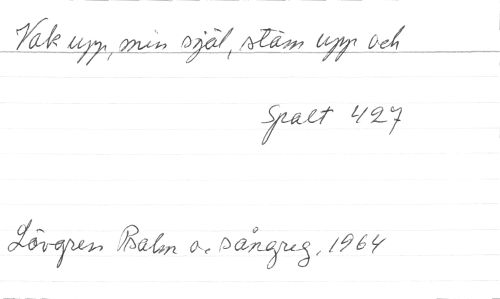 Vak upp, min själ, stäm upp och
Spalt 427
Lövgren Psalm o. sångreg. 1964